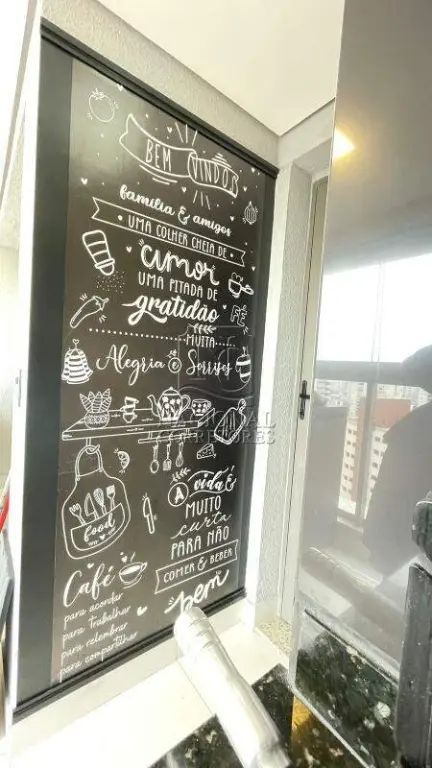 BEM VINDOS
família & amigos
UMA COLHER CHEIA DE
amor
UMA PITADA DE
gratidão
FÉ
MUITA
Alegria e Sorrisos
NACIONAL
CORRETORES
food
A vida É
MUITO
curta
PARA NÃO
COMER & BEBER
bem
Café
para acordar
para trabalhar
para relembrar
para compartilhar